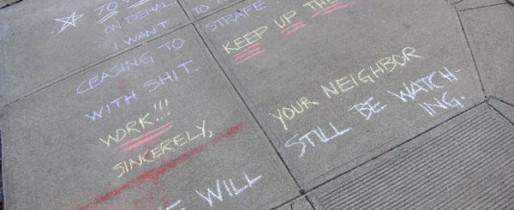 TO
ON
I WANT TO
CEASING TO STRAFE
WITH SHIT. KEEP UP THE
WORK!!!
SINCERELY, YOUR NEIGHBOR
WILL STILL BE WATCH-
ING.